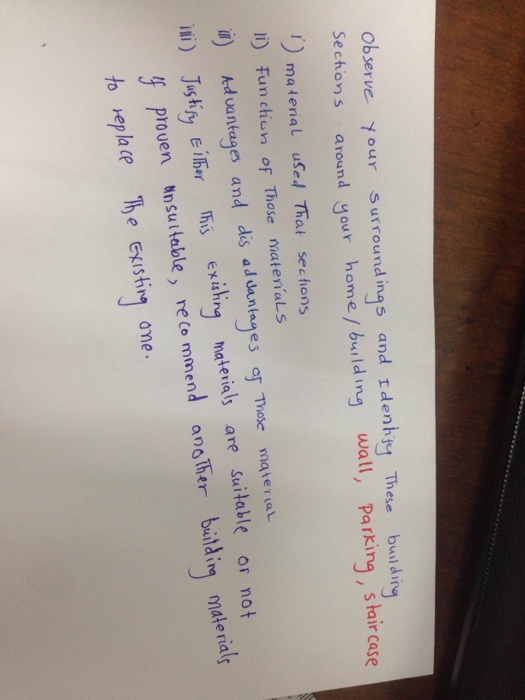 Observe your surroundings and Identify These building
Sections around your home/building wall, parking, staircase
i) material used That sections
ii) Function of Those materials
iii) Advantages and dis advantages of Those material
iiii) Justify Either This existing materials are suitable or not
If proven unsuitable, recommend another building materials
to replace The Existing one.